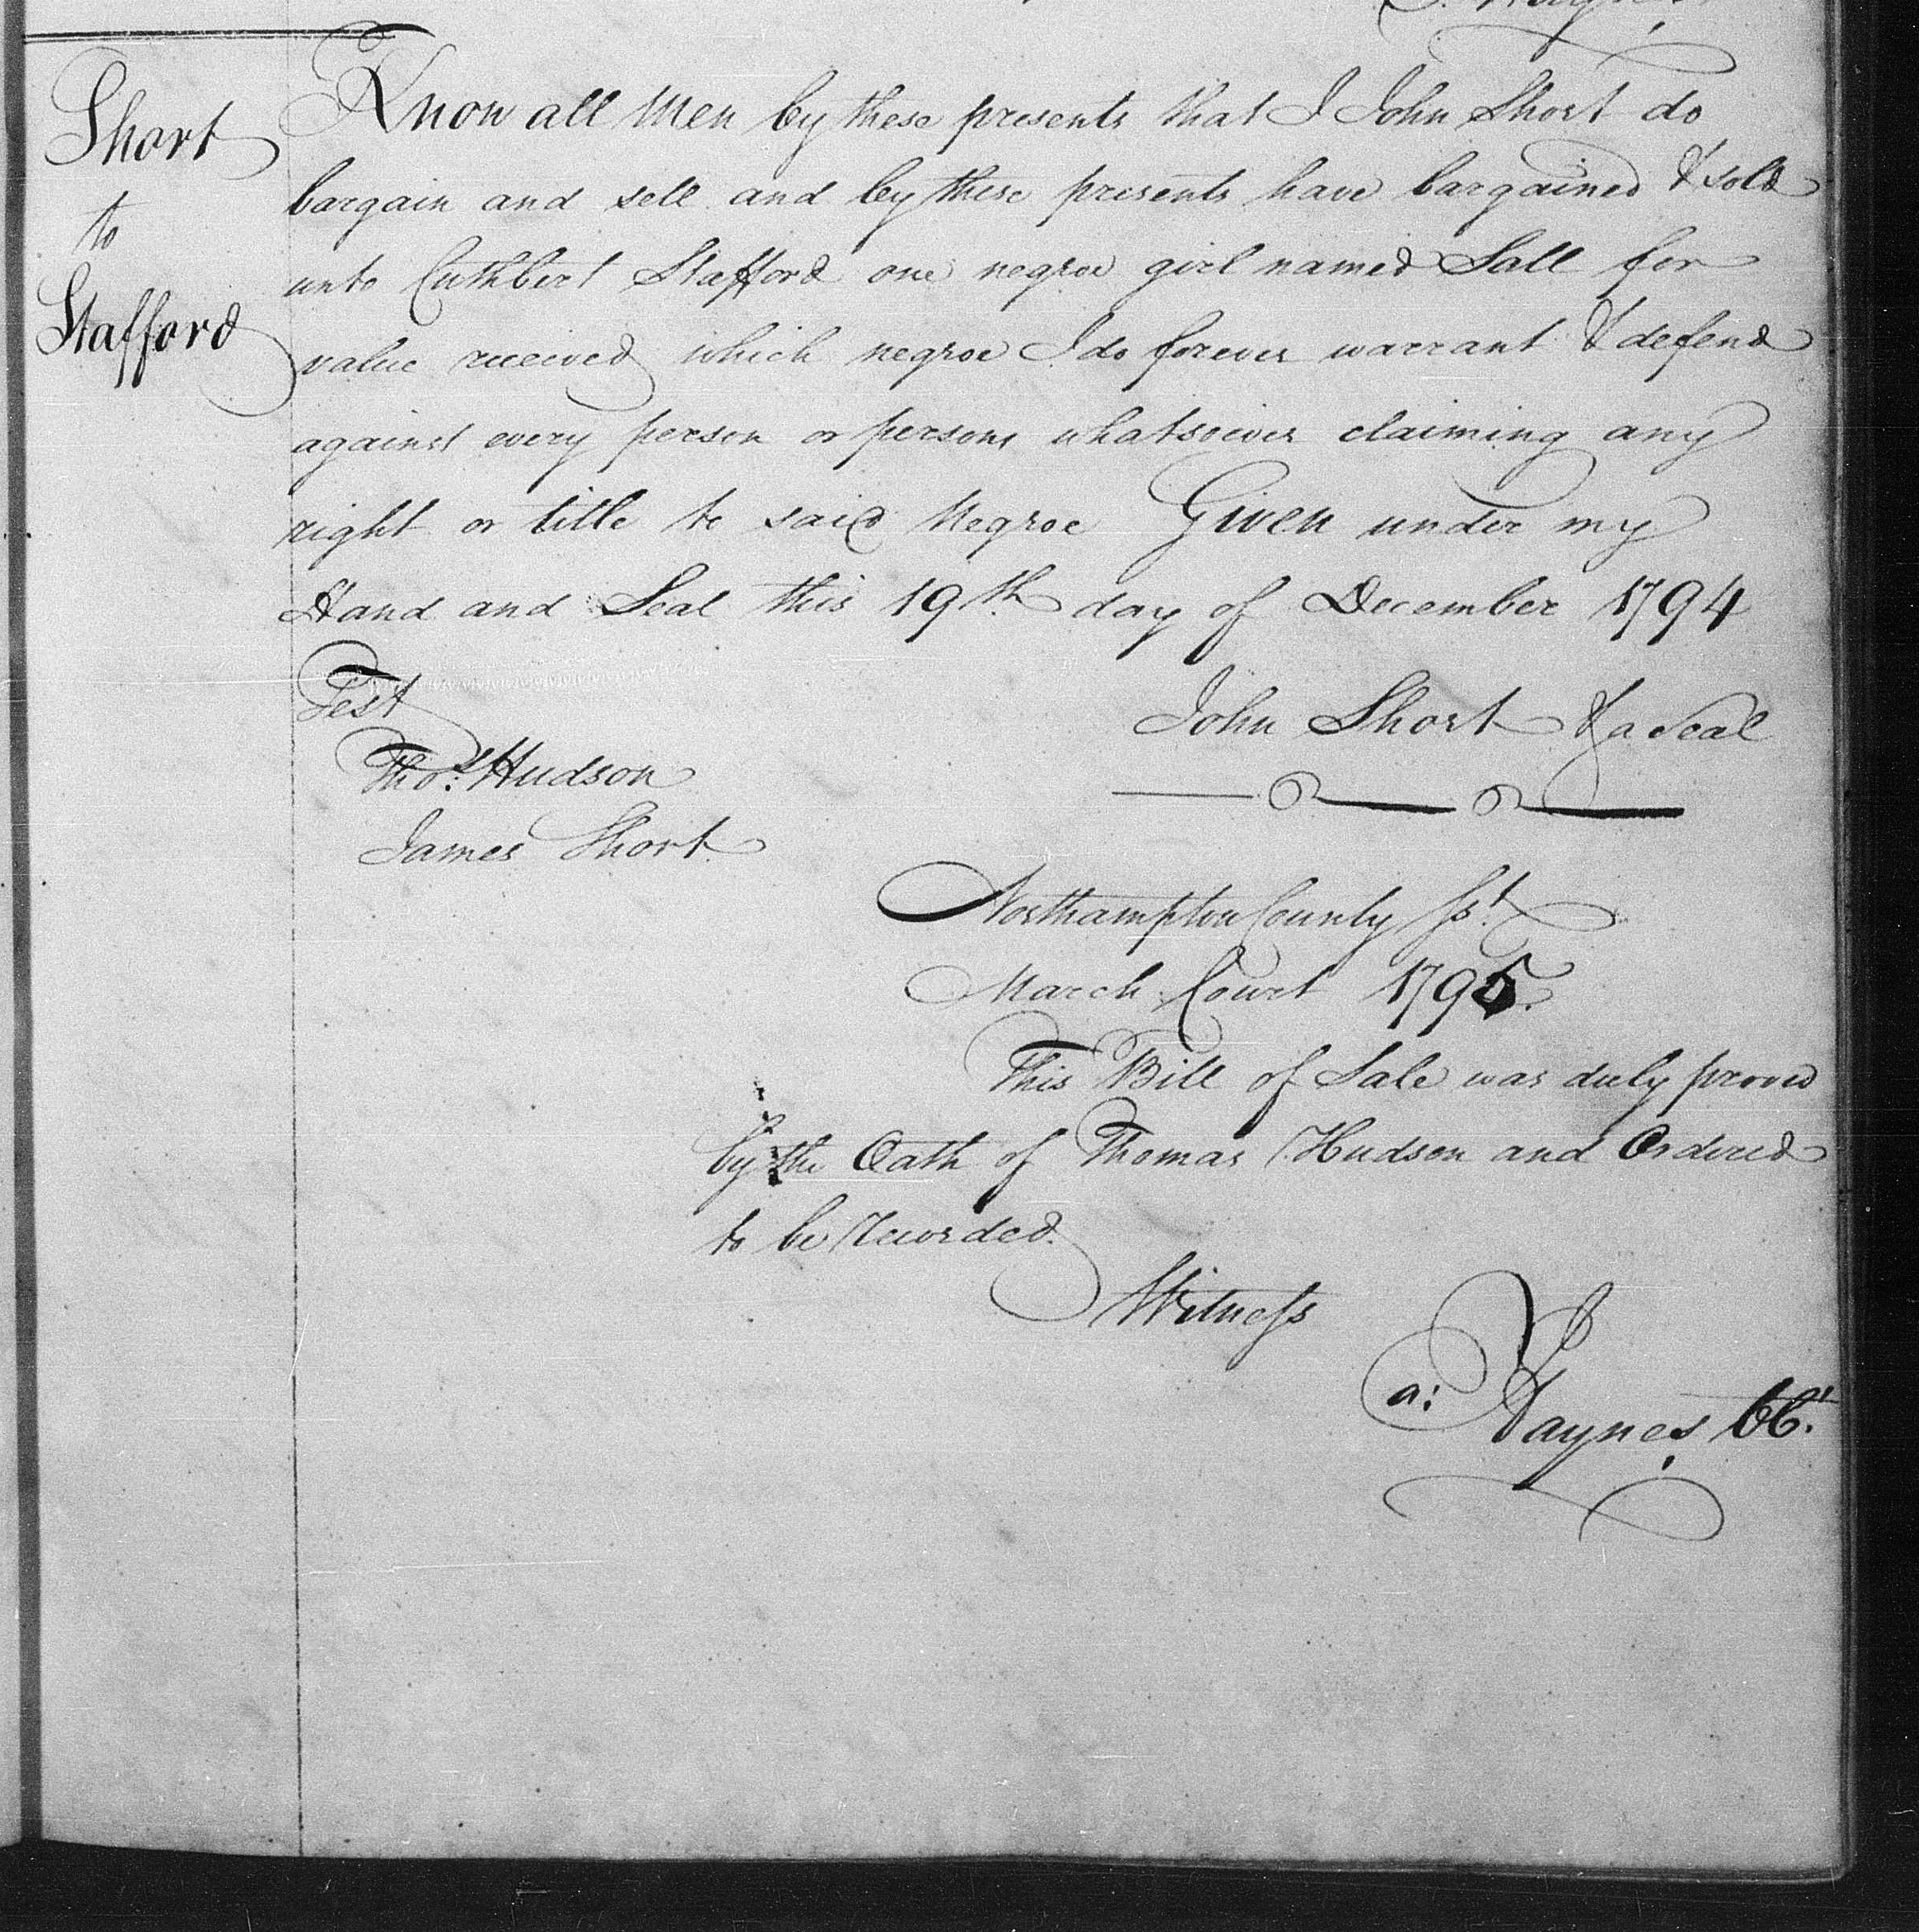 Short
to
Stafford
Know all Men by these presents that I John Short do
bargain and sell and by these presents have bargained & sold
unto Cuthbert Stafford one negroe girl named Sall for
value received which negroe I do forever warrant & defend
against every person or persons whatsoever claiming any
right or title to said Negroe Given under my
Hand and Seal this 19th day of December 1794
Test
John Short & a Seal
Thos. Hudson
James Short
Northampton County Sst.
March Court 1795.
This Bill of Sale was duly proved
by the Oath of Thomas Hudson and Ordered
to be Recorded.
Witness
Haynes CCt.